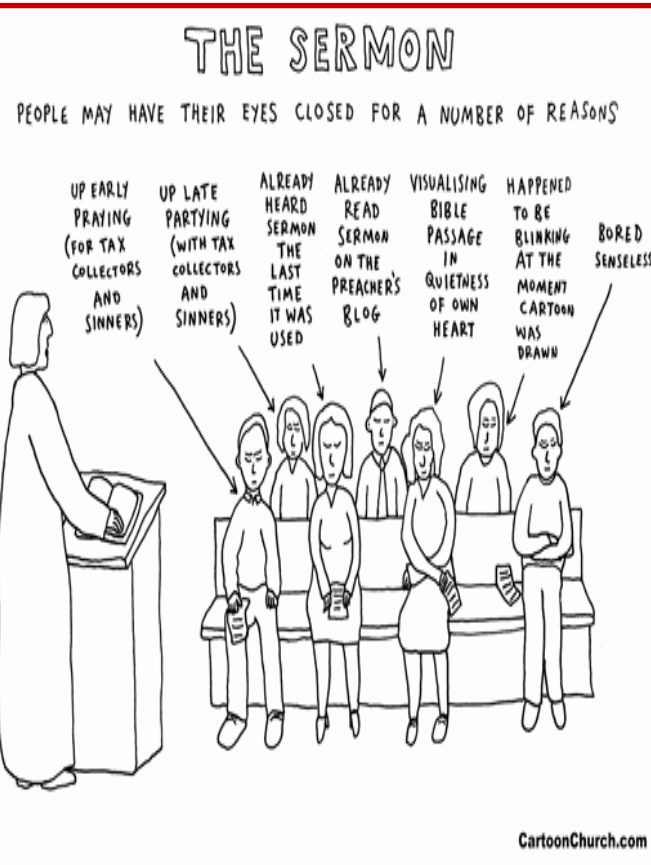 THE SERMON
PEOPLE MAY HAVE THEIR EYES CLOSED FOR A NUMBER OF REASONS
UP EARLY
PRAYING
(FOR TAX
COLLECTORS
AND
SINNERS)
UP LATE
PARTYING
(WITH TAX
COLLECTORS
AND
SINNERS)
ALREADY
HEARD
SERMON
THE
LAST
TIME
IT WAS
USED
ALREADY
READ
SERMON
ON THE
PREACHER'S
BLOG
VISUALISING
BIBLE
PASSAGE
IN
QUIETNESS
OF OWN
HEART
HAPPENED
TO BE
BLINKING
AT THE
MOMENT
CARTOON
WAS
DRAWN
BORED
SENSELESS
CartoonChurch.com